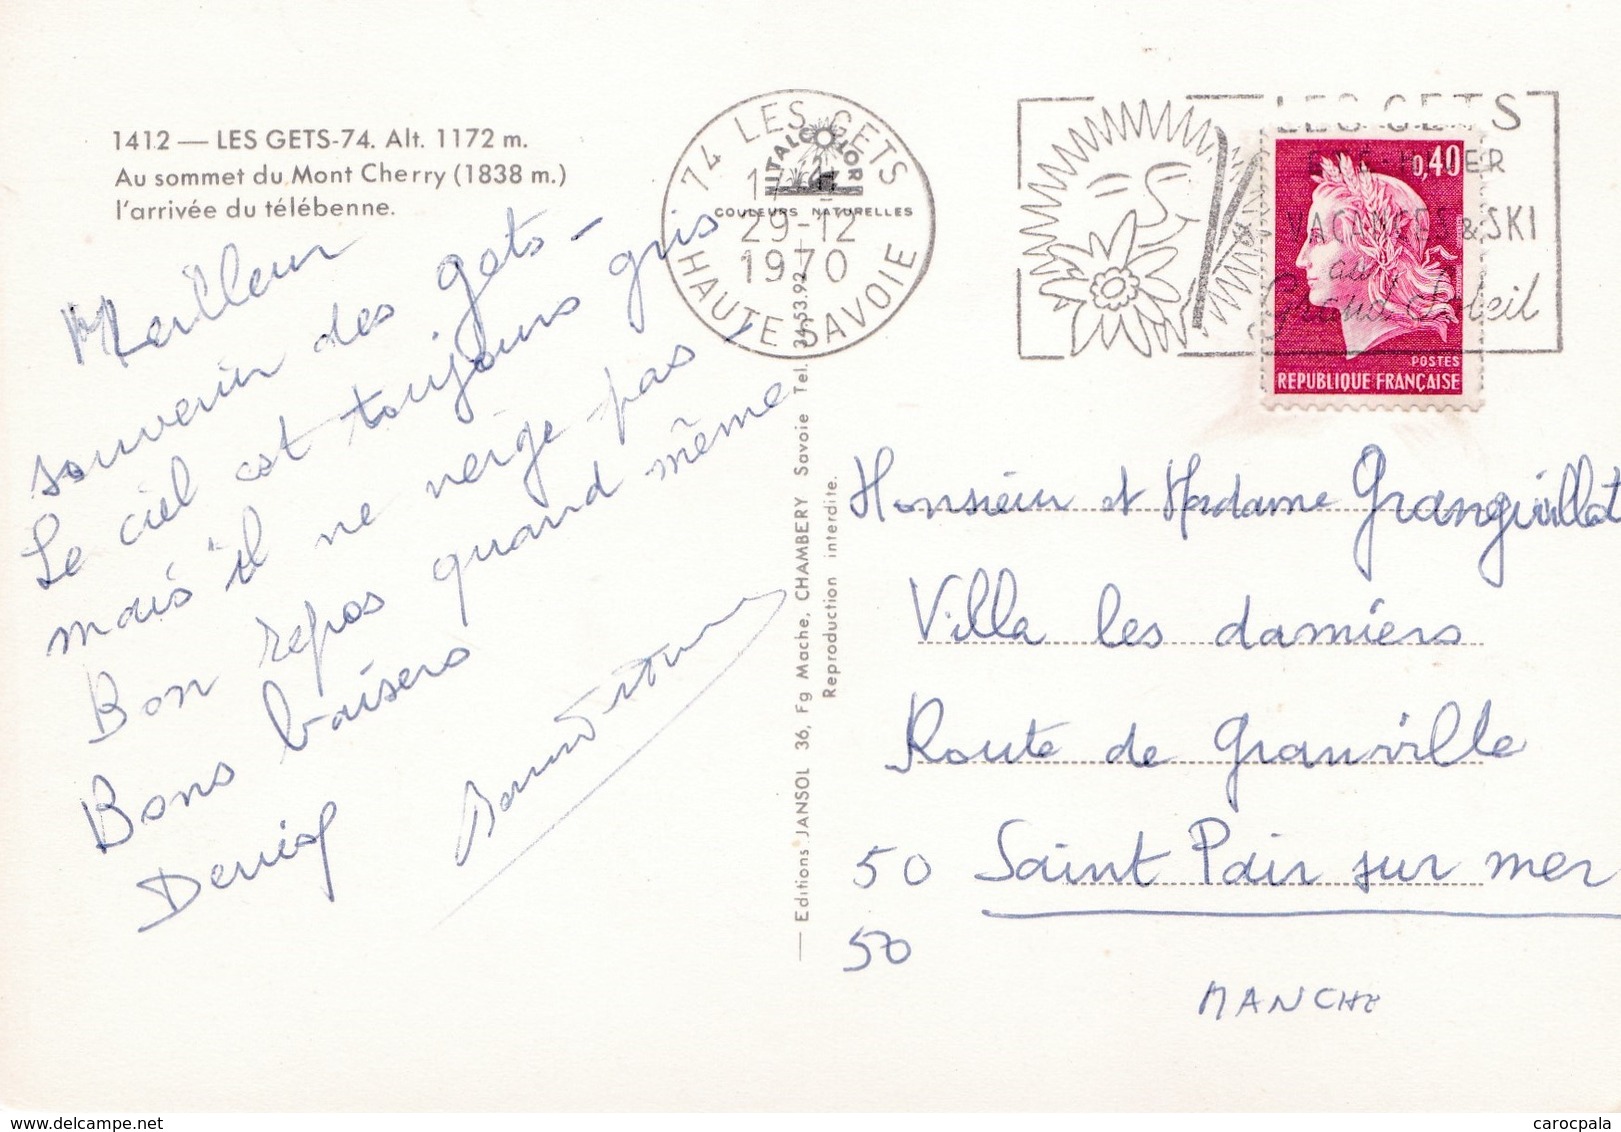 1412 — LES GETS-74. Alt. 1172 m.
Au sommet du Mont Cherry (1838 m.)
l'arrivée du télébenne.
Meilleur
souvenir des gets -
Le ciel est toujours gris
mais il ne neige pas,
Bon repos quand même
Bons baisers
Denise
74 LES GETS
29-12
1970
HAUTE-SAVOIE
ITALCOLOR
COULEURS NATURELLES
LES GETS
ETE-HIVER
VACANCES & SKI
au
Grand Soleil
0,40
POSTES
REPUBLIQUE FRANÇAISE
— Editions JANSOL 36, Fg Mache, CHAMBERY Savoie Tel. 34.53.92
Reproduction interdite.
Monsieur et Madame Granguillot
Villa les damiers
Route de Granville
50 Saint Pair sur mer
50
MANCHE
carocpala